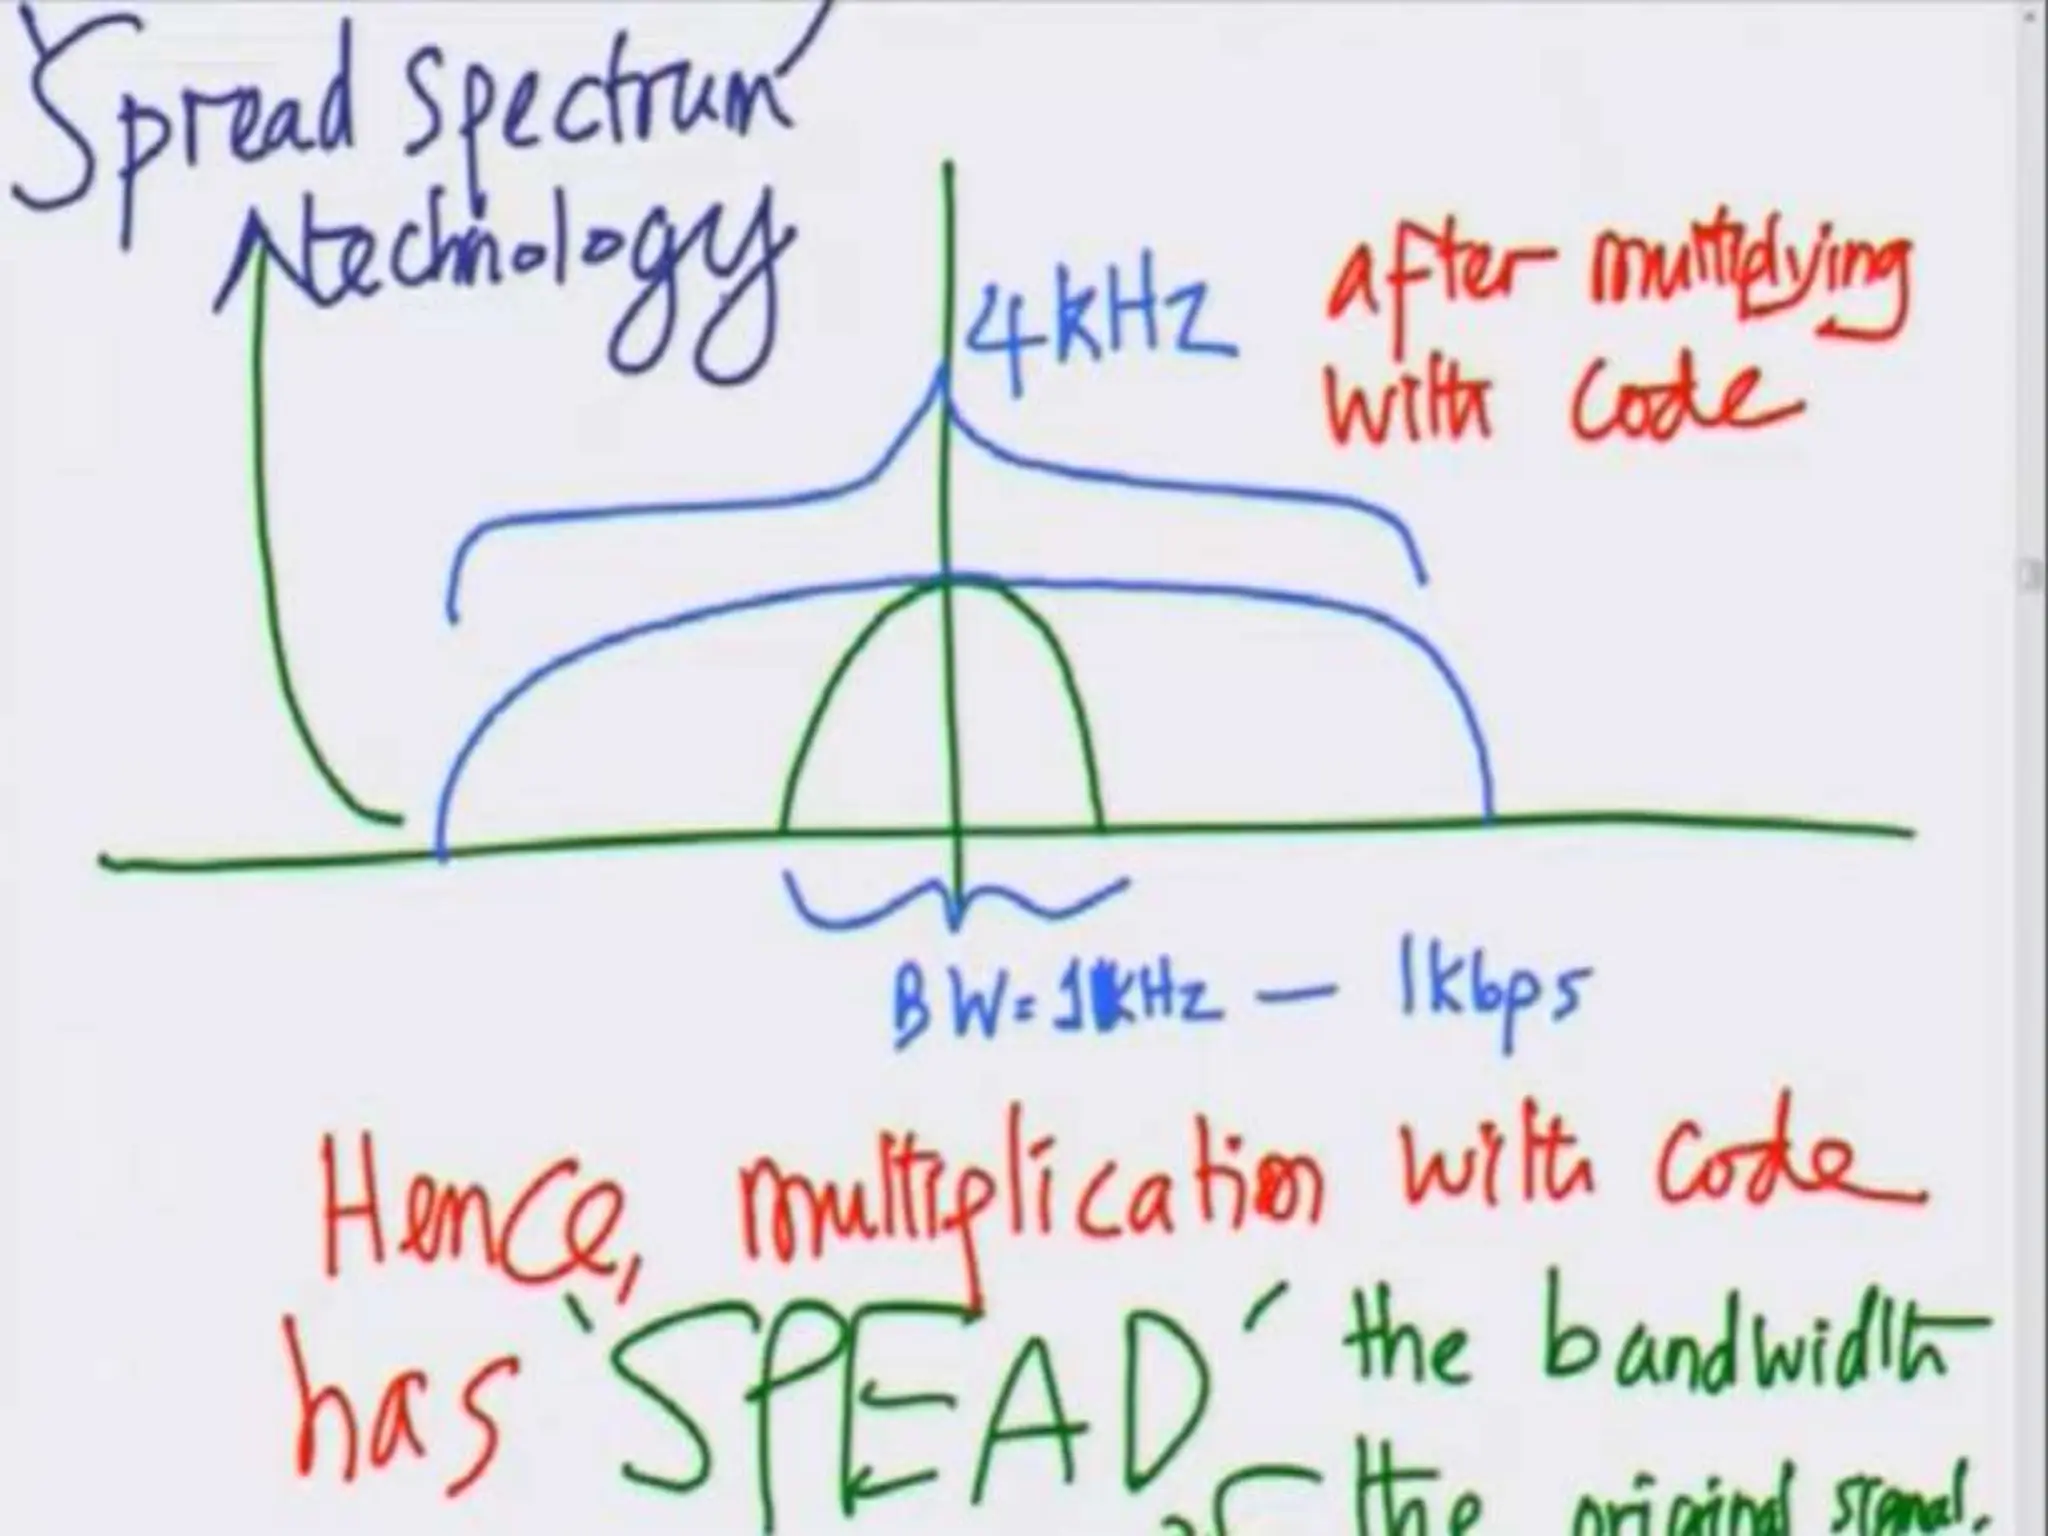 Spread Spectrum
technology
4kHz
after multiplying
with code
BW=1kHz — 1kbps
Hence, multiplication with code
has `SPEAD´ the bandwidth
of the original signal.